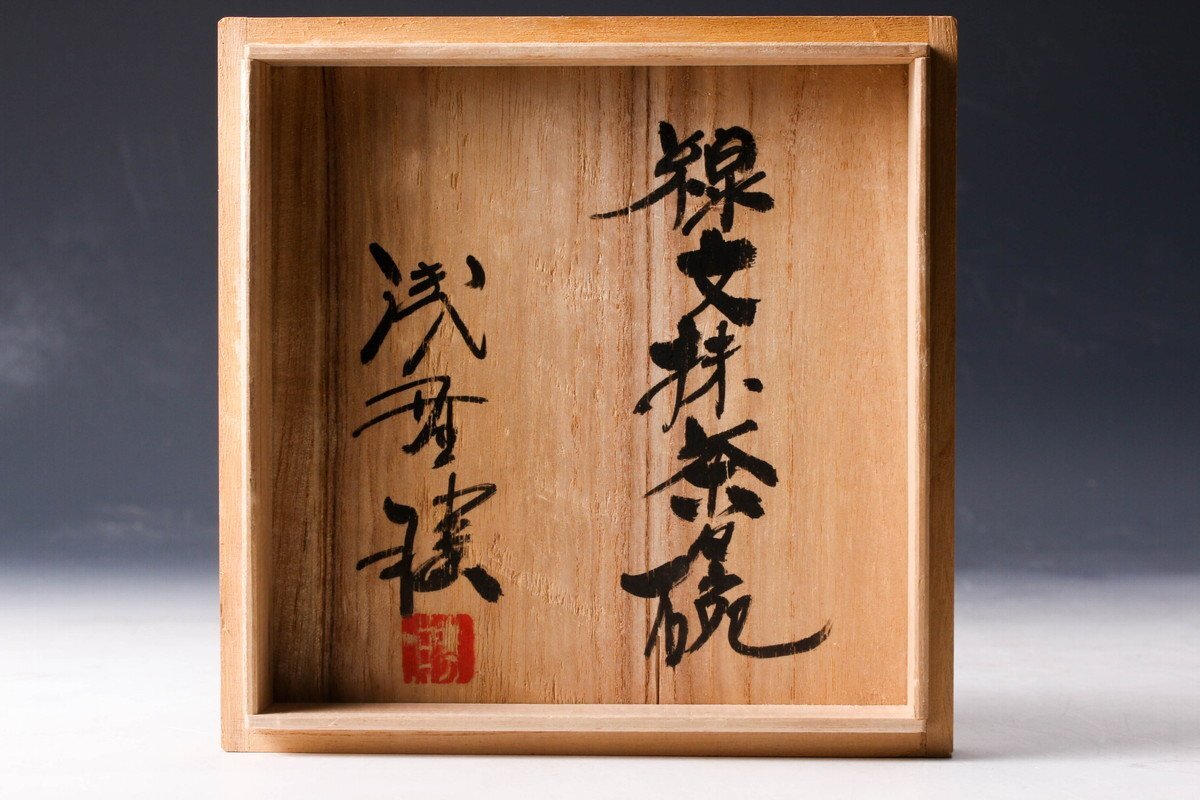 線文抹茶碗
浅野陽